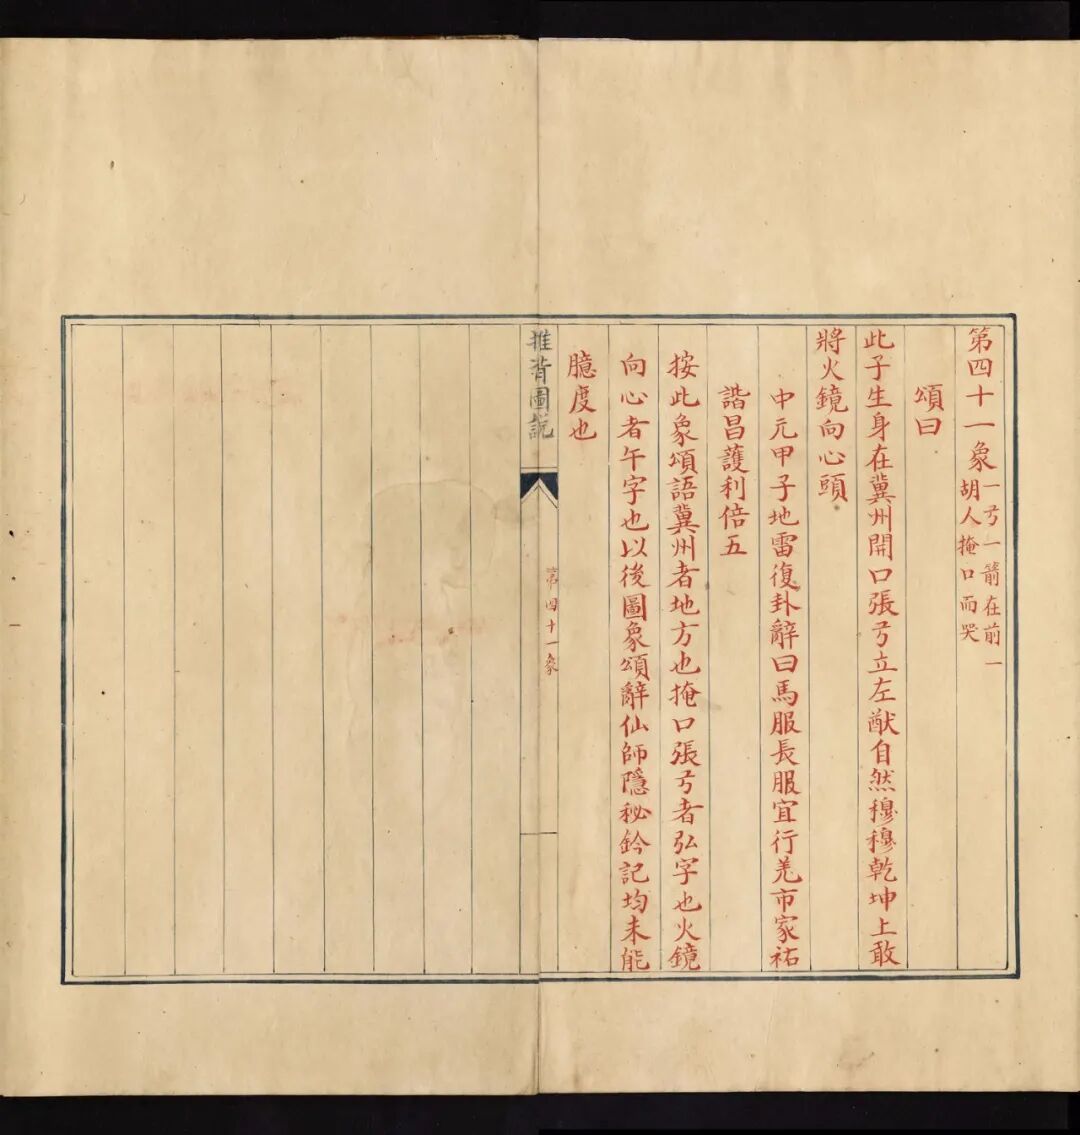 第四十一象
一弓一箭在前一
胡人掩口而哭
頌曰
此子生身在冀州開口張弓立左猷自然穆穆乾坤上敢
將火鏡向心頭
中元甲子地雷復卦辭曰馬服長服宜行羌市家祐
諧昌護利倍五
按此象頌語冀州者地方也掩口張弓者弘字也火鏡
向心者午字也以後圖象頌辭仙師隱秘鈐記均未能
臆度也
推背圖說
第四十一象